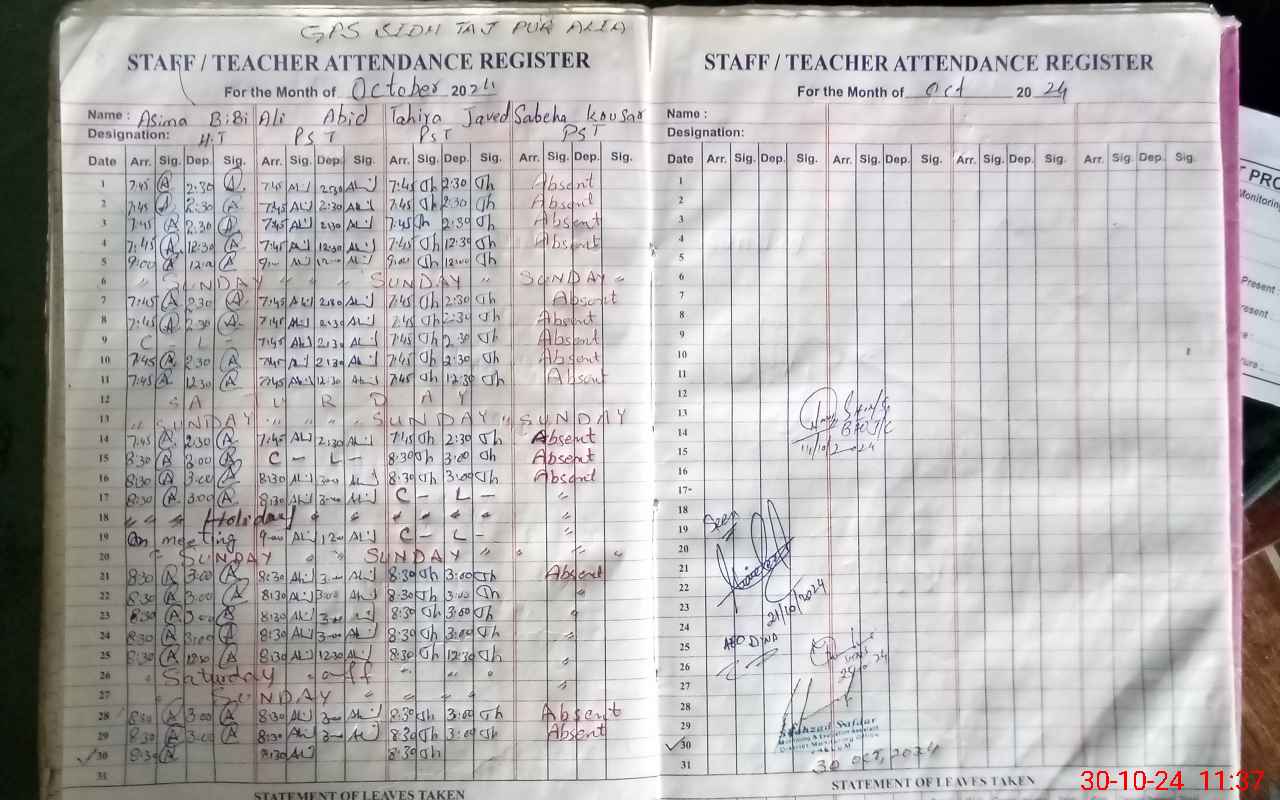 GPS SIDH TAJ PUR ALIA
STAFF / TEACHER ATTENDANCE REGISTER
For the Month of October 2024
Name : Asima BiBi Ali Abid Tahira Javed Sabeha Kousar
Designation: H.T PST PST PST
Date Arr. Sig. Dep. Sig. Arr. Sig. Dep. Sig. Arr. Sig. Dep. Sig. Arr. Sig. Dep. Sig.
1 7:45 A 2:30 A 7:45 Ali 2:30 Ali 7:45 Th 2:30 Th Absent
2 7:45 A 2:30 A 7:45 Ali 2:30 Ali 7:45 Th 2:30 Th Absent
3 7:45 A 2:30 A 7:45 Ali 2:30 Ali 7:45 Th 2:30 Th Absent
4 7:45 A 12:30 A 7:45 Ali 12:30 Ali 7:45 Th 12:30 Th Absent
5 9:00 A 12:00 A 9:00 Ali 12:00 Ali 9:00 Th 12:00 Th
6 " SUNDAY " " SUNDAY " SUNDAY "
7 7:45 A 2:30 A 7:45 Ali 2:30 Ali 7:45 Th 2:30 Th Absent
8 7:45 A 2:30 A 7:45 Ali 2:30 Ali 7:45 Th 2:30 Th Absent
9 C - L - 7:45 Ali 2:30 Ali 7:45 Th 2:30 Th Absent
10 7:45 A 2:30 A 7:45 Ali 2:30 Ali 7:45 Th 2:30 Th Absent
11 7:45 A 12:30 A 7:45 Ali 12:30 Ali 7:45 Th 12:30 Th Absent
12 SATURDAY
13 " SUNDAY " " " SUNDAY " SUNDAY
14 7:45 A 2:30 A 7:45 Ali 2:30 Ali 7:45 Th 2:30 Th Absent
15 8:30 A 3:00 A C - L - 8:30 Th 3:00 Th Absent
16 8:30 A 3:00 A 8:30 Ali 3:00 Ali 8:30 Th 3:00 Th Absent
17 8:30 A 3:00 A 8:30 Ali 3:00 Ali C - L - "
18 " " " Holiday " " " " " " "
19 On meeting 9:00 Ali 12:00 Ali C - L - "
20 " SUNDAY " " SUNDAY " " " "
21 8:30 A 3:00 A 8:30 Ali 3:00 Ali 8:30 Th 3:00 Th Absent
22 8:30 A 3:00 A 8:30 Ali 3:00 Ali 8:30 Th 3:00 Th "
23 8:30 A 3:00 A 8:30 Ali 3:00 Ali 8:30 Th 3:00 Th "
24 8:30 A 3:00 A 8:30 Ali 3:00 Ali 8:30 Th 3:00 Th "
25 8:30 A 12:30 A 8:30 Ali 12:30 Ali 8:30 Th 12:30 Th "
26 " Saturday " off " " " "
27 " SUNDAY " " " " "
28 8:30 A 3:00 A 8:30 Ali 3:00 Ali 8:30 Th 3:00 Th Absent
29 8:30 A 3:00 A 8:30 Ali 3:00 Ali 8:30 Th 3:00 Th Absent
30 8:30 A 8:30 Ali 8:30 Th
31
STATEMENT OF LEAVES TAKEN
STAFF / TEACHER ATTENDANCE REGISTER
For the Month of Oct 2024
Name :
Designation:
Date Arr. Sig. Dep. Sig. Arr. Sig. Dep. Sig. Arr. Sig. Dep. Sig. Arr. Sig. Dep. Sig.
1
2
3
4
5
6
7
8
9
10
11
12
13
14
14/10/2024
15
16
17
18
19 Seen
20
21
22
23 21/10/2024
24
25 AEO DINA
26
27
28
29 Shahzad Safdar
30
31 30 OCT, 2024
STATEMENT OF LEAVES TAKEN
T PRO
Monitoring
Present :
30-10-24 11:37